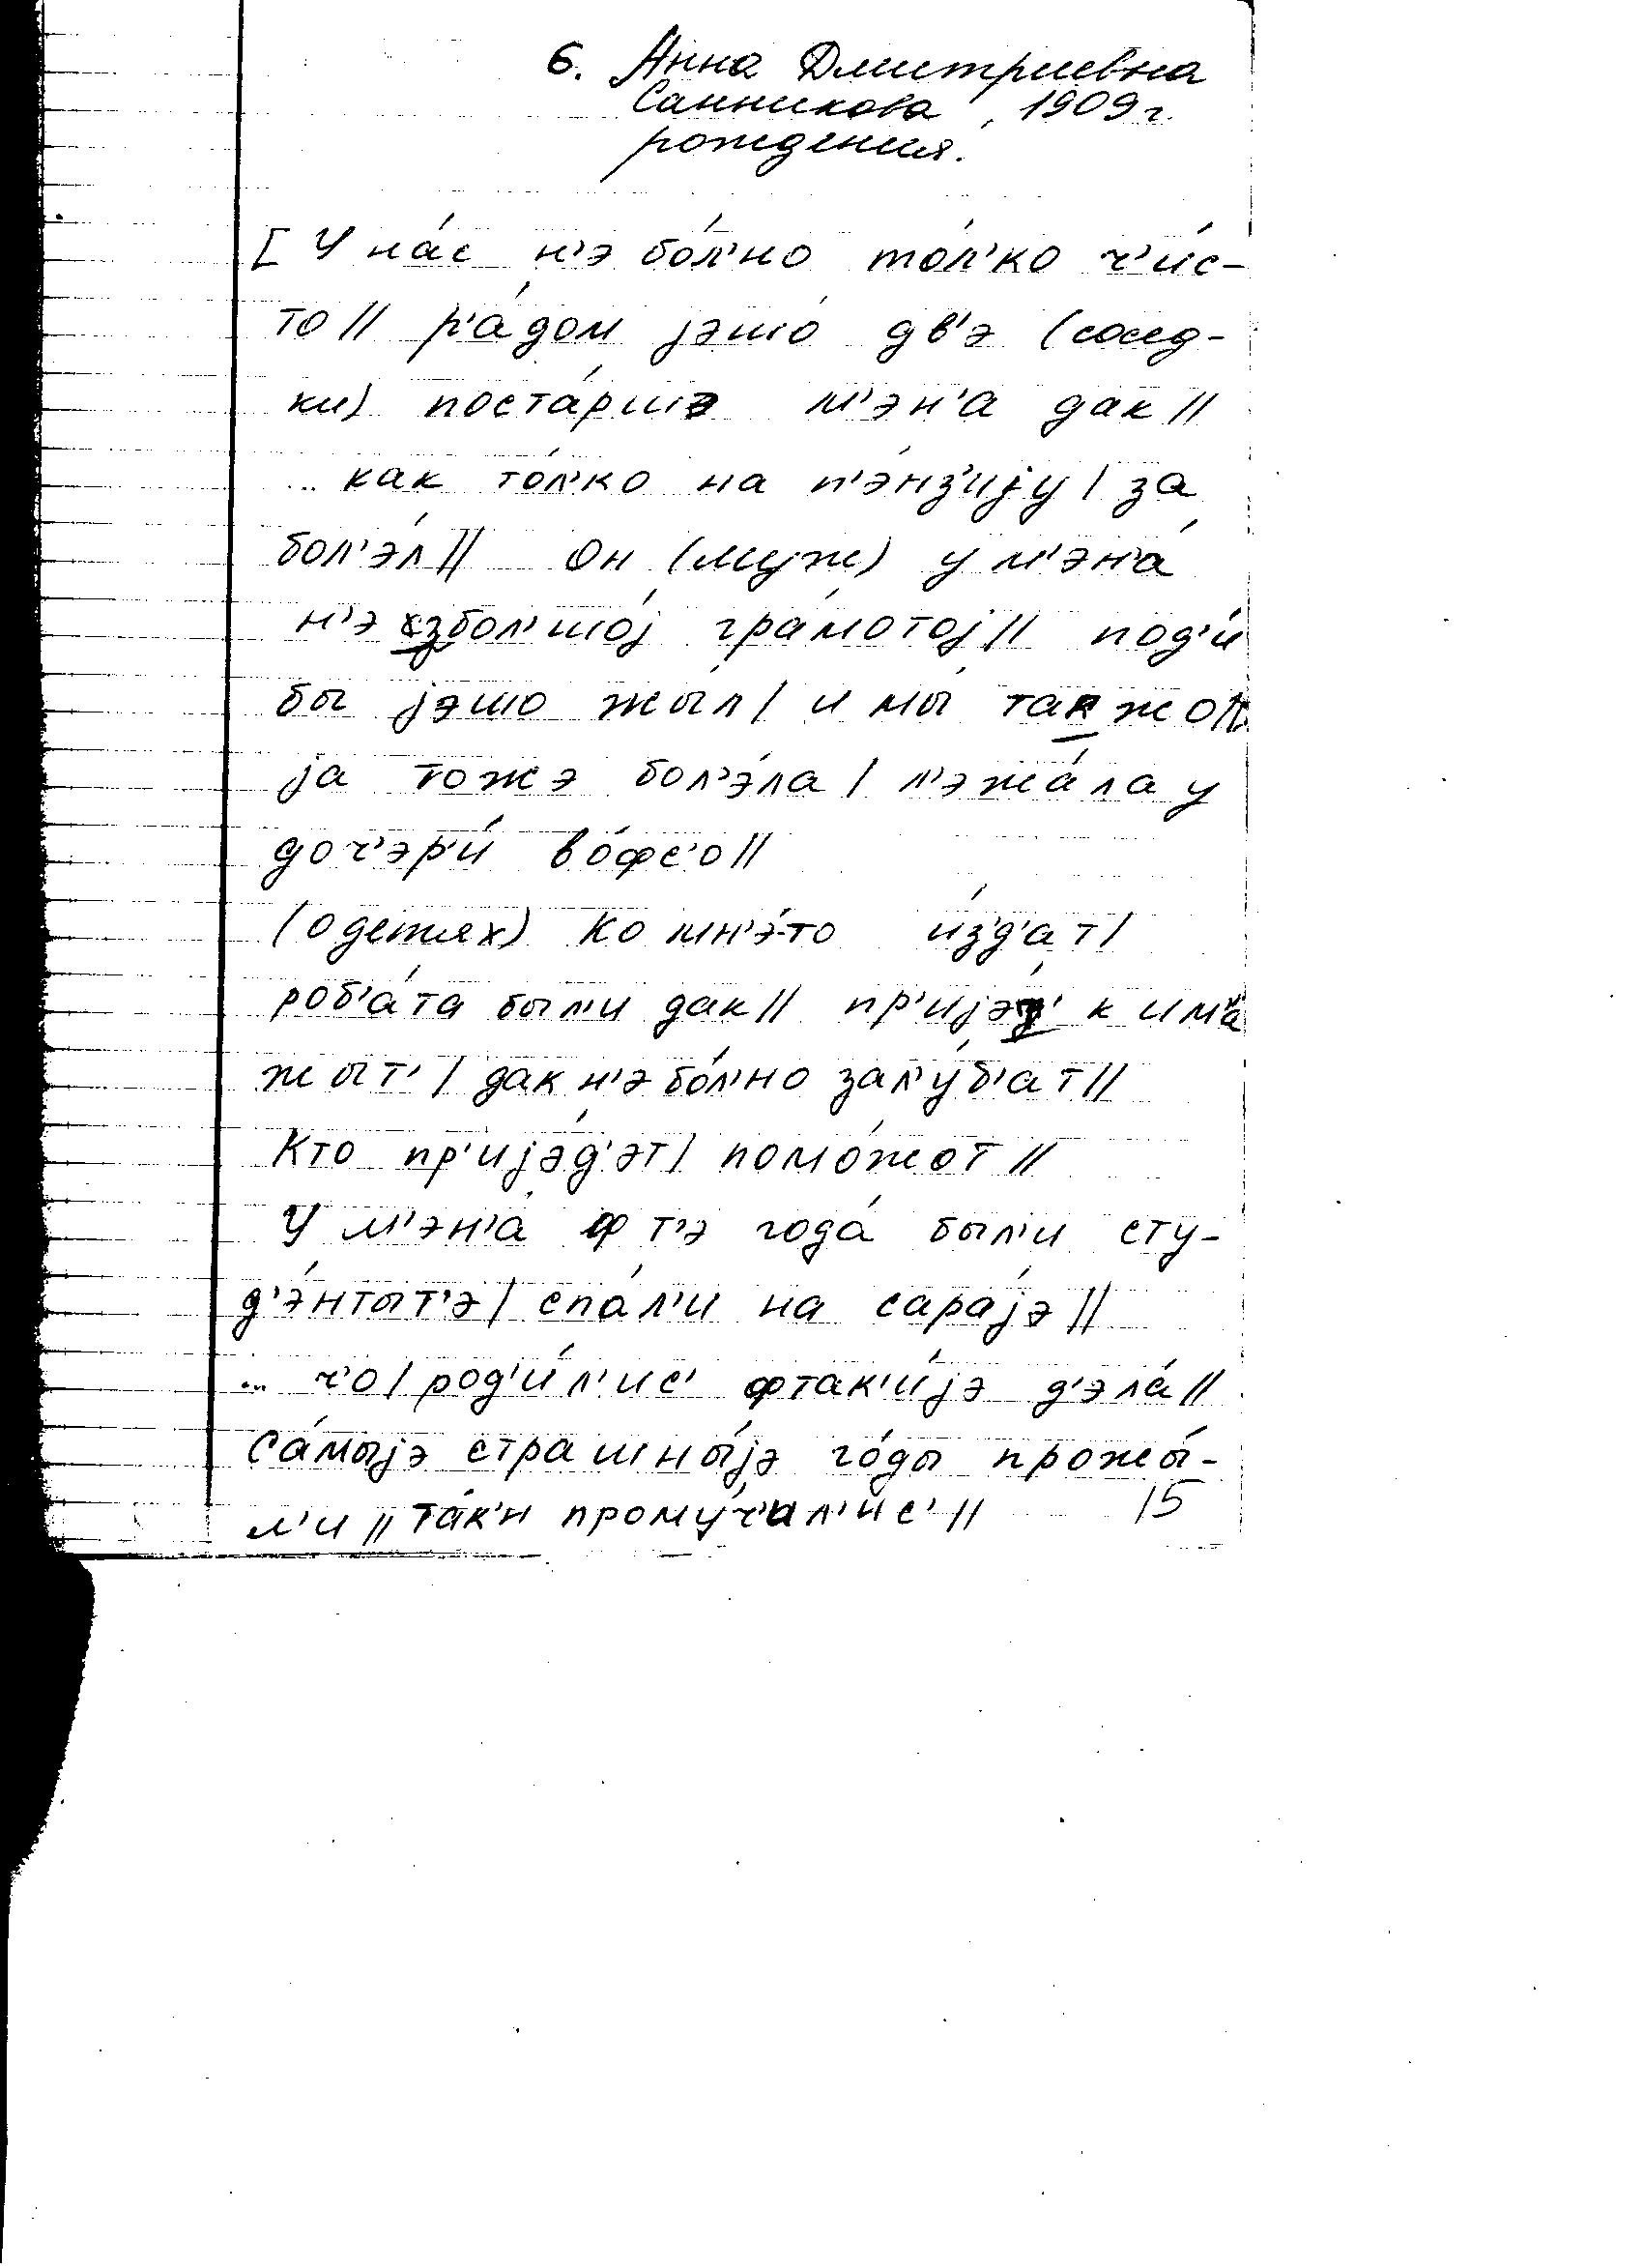 6. Анна Дмитриевна
Санникова, 1909 г.
рождения.
[У на́с н'э бо́л'но то́л'ко ч'и́с-
то // р'а́дом јэшо́ дв'э (сосед-
ки) поста́ршэ м'эн'а дак //
... как то́л'ко на п'э́нз'ију / за
бол'э́л // Он (муж) у м'эн'а́
н'э збол'шо́ј гра́мотој // под'и́
бы јэшо жы́л / и мы́ так жо //
ја тожэ бол'э́ла / л'эжа́ла у
доч'эр'и́ во́фс'о //
(о детях) Ко мн'э́-то и́зд'ат /
роб'а́та был'и дак // пр'ијэ́д' к им
жыт' / дак н'э бо́л'но зал'у́б'ат //
Кто пр'ијэ́д'эт / помо́жот //
У м'эн'а́ ф т'э года́ был'и сту-
д'э́нтыт'э / спа́л'и на сара́јэ //
... ч'о / род'и́л'ис' фтак'и́јэ д'эла́ //
Са́мыјэ страшны́јэ го́ды прожы́-
л'и // та́к'и прому́ч'ал'ис' // 15